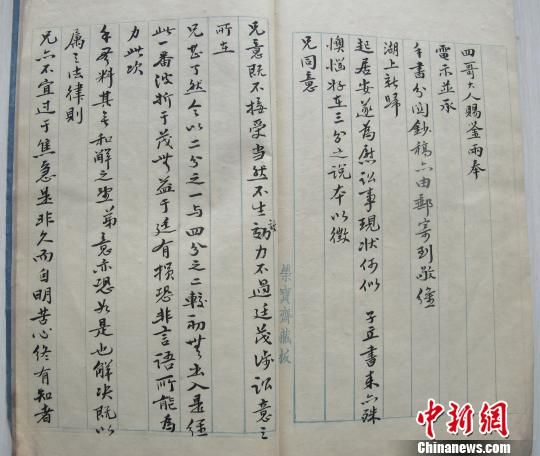 四哥大人賜鑒兩奉
電示並承
手書分閱鈔稿亦由郵寄到敬
湖上新歸
起居安遂為慰訟事現狀何似 子立書來亦殊
懊惱好在三分之說本以徵
兄同意
榮寶齋藏板
兄意既不接受當然不生効力不過廷茂涉訟意之
所在
兄甚了然今以二分之一与四分之二較初無出入是經
此一番波折于茂無益于廷有損恐非言語所能為
力此次
料其和解之弟意亦恐如是也解决既以
属之法律則
兄亦不宜过于焦急是非久而自明苦心终有知者
中新网
www.chinanews.com